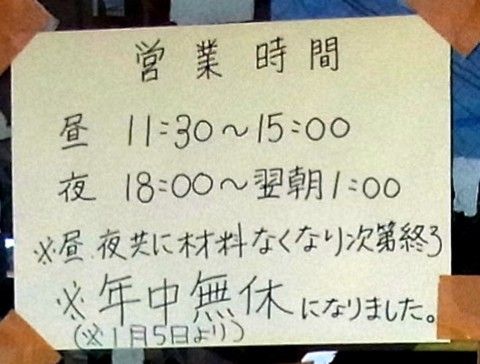 営業時間
昼 11:30～15:00
夜 18:00～翌朝1:00
※昼、夜共に材料なくなり次第終了
※年中無休になりました。
(※1月5日より)